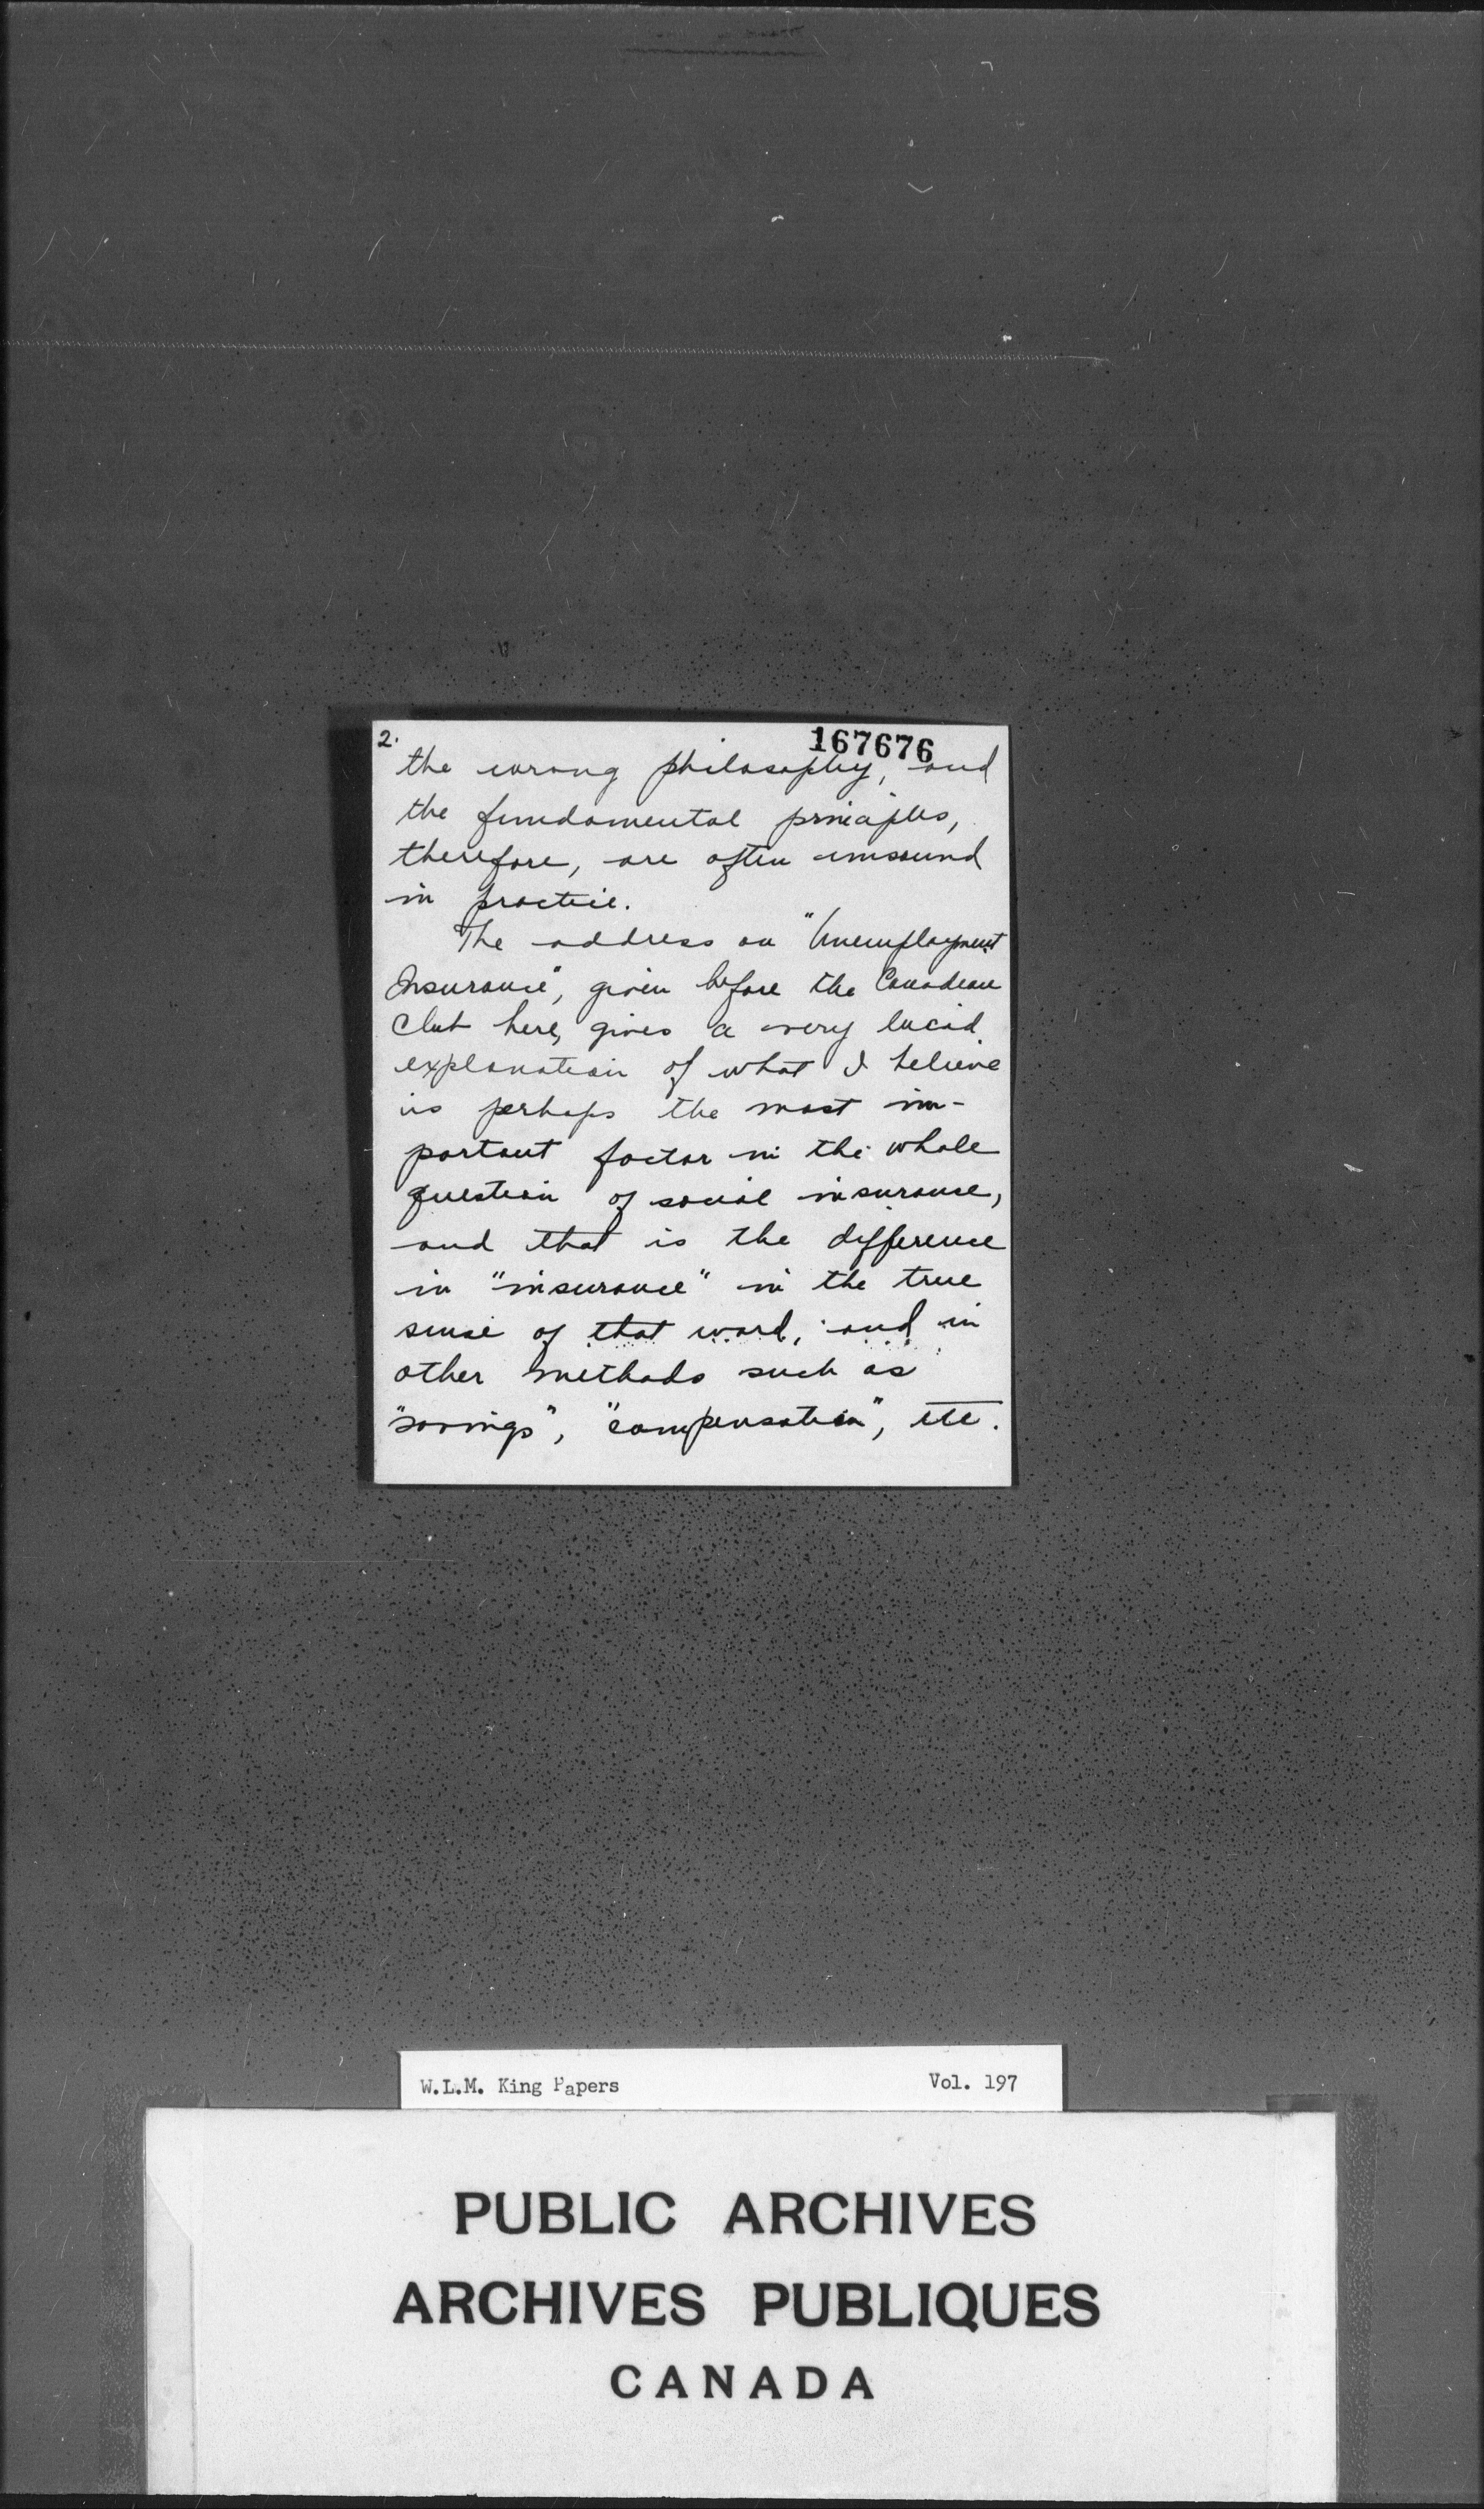 2.
167676
the wrong philosophy, and
the fundamental principles,
therefore, are often unsound
in practice.
The address on "Unemployment
Insurance", given before the Canadian
Club here, gives a very lucid
explanation of what I believe
is perhaps the most im-
portant factor in the whole
question of social insurance,
and that is the difference
in "insurance" in the true
sense of that word, and in
other methods such as
"savings", "compensation", etc.
W.L.M. King Papers Vol. 197
PUBLIC ARCHIVES
ARCHIVES PUBLIQUES
CANADA